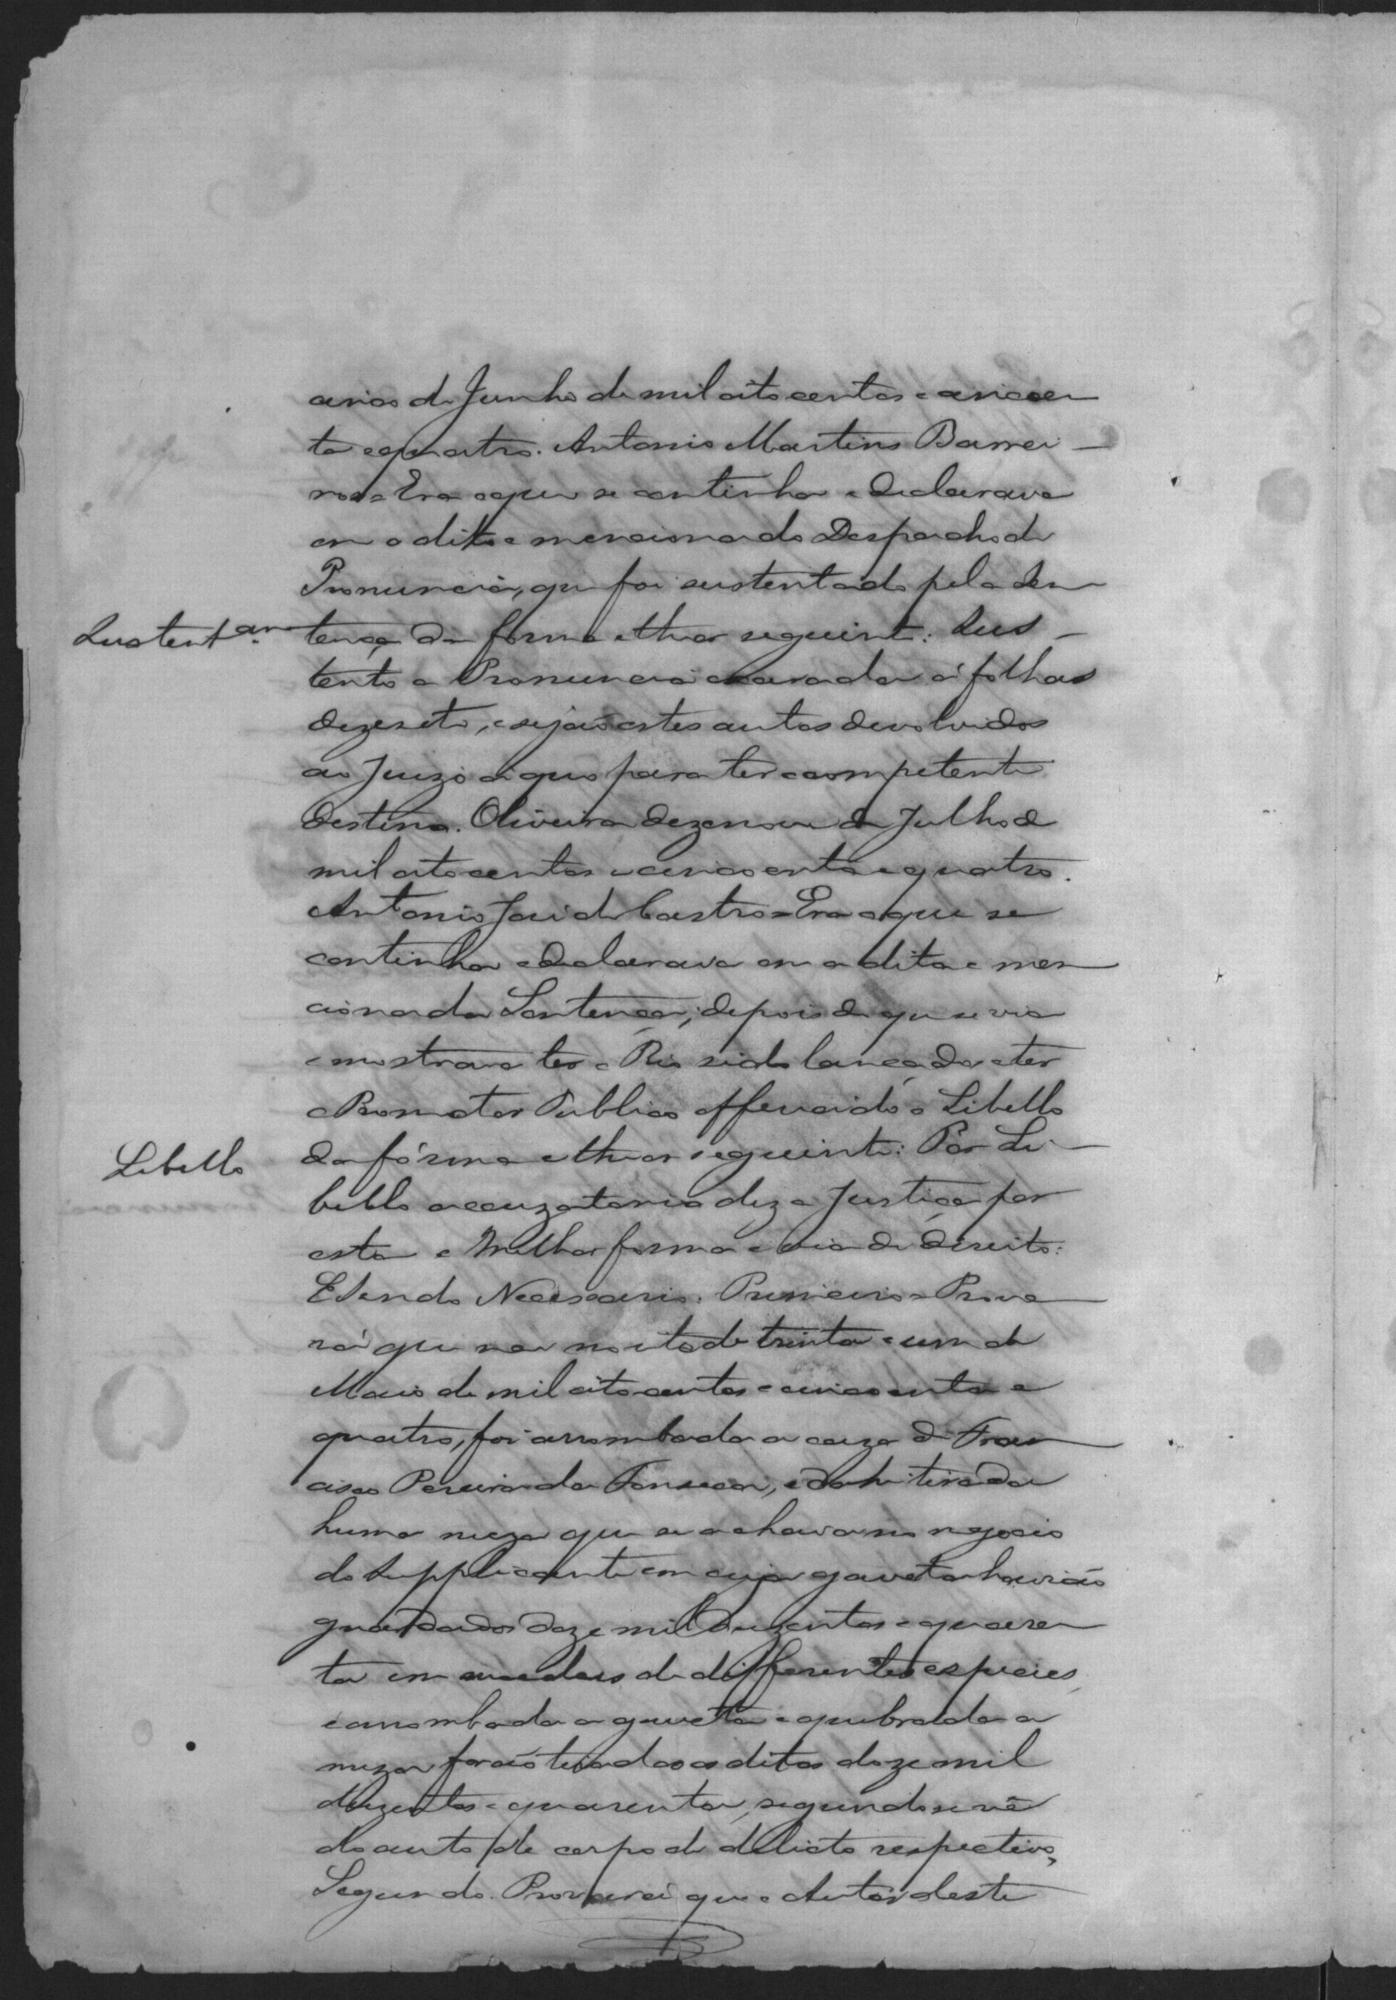 cinco de Junho de mil oito centos e cincoen
ta e quatro. Antonio Martins Barrei-
ros = Era o que se continha e declarava
em o dito e mencionado Despacho de
Pronuncia, que foi sustentado pela Sen
Sustentam.
tença da forma e theor seguinte: Sus-
tento a Pronuncia exarada á folhas
dezesete, e sejão estes autos devolvidos
ao Juizo á quo para ter o competente
destino. Oliveira dezenove de Julho de
mil oito centos e cincoenta e quatro.
Antonio José de Castro = Era o que se
continha e declarava em a dita e men
cionada Sentença; depois do que se via
e mostrava ter o Réo sido lançado e ter
o Promotor Publico offerecido o Libello
Libello
da fórma e theor seguinte: Por Li-
bello accuzatorio diz a Justiça por
esta e Melhor forma e via de direito:
E Sendo Necessario. Primeiro = Prova
rá que na noite de trinta e um de
Maio de mil oito centos e cincoenta e
quatro, foi arrombada a caza de Fran
cisco Pereira da Fonseca, e dahi tirada
huma meza que se achava no negocio
do Supplicante em cuja gaveta havião
guardados doze mil duzentos e quaren
ta em moedas de differentes especies,
e arrombada a gaveta e quebrada a
meza forão tirados os ditos doze mil
duzentos e quarenta, segundo se vê
do auto de corpo de delicto respectivo,
Segundo. Provará que o Autor deste